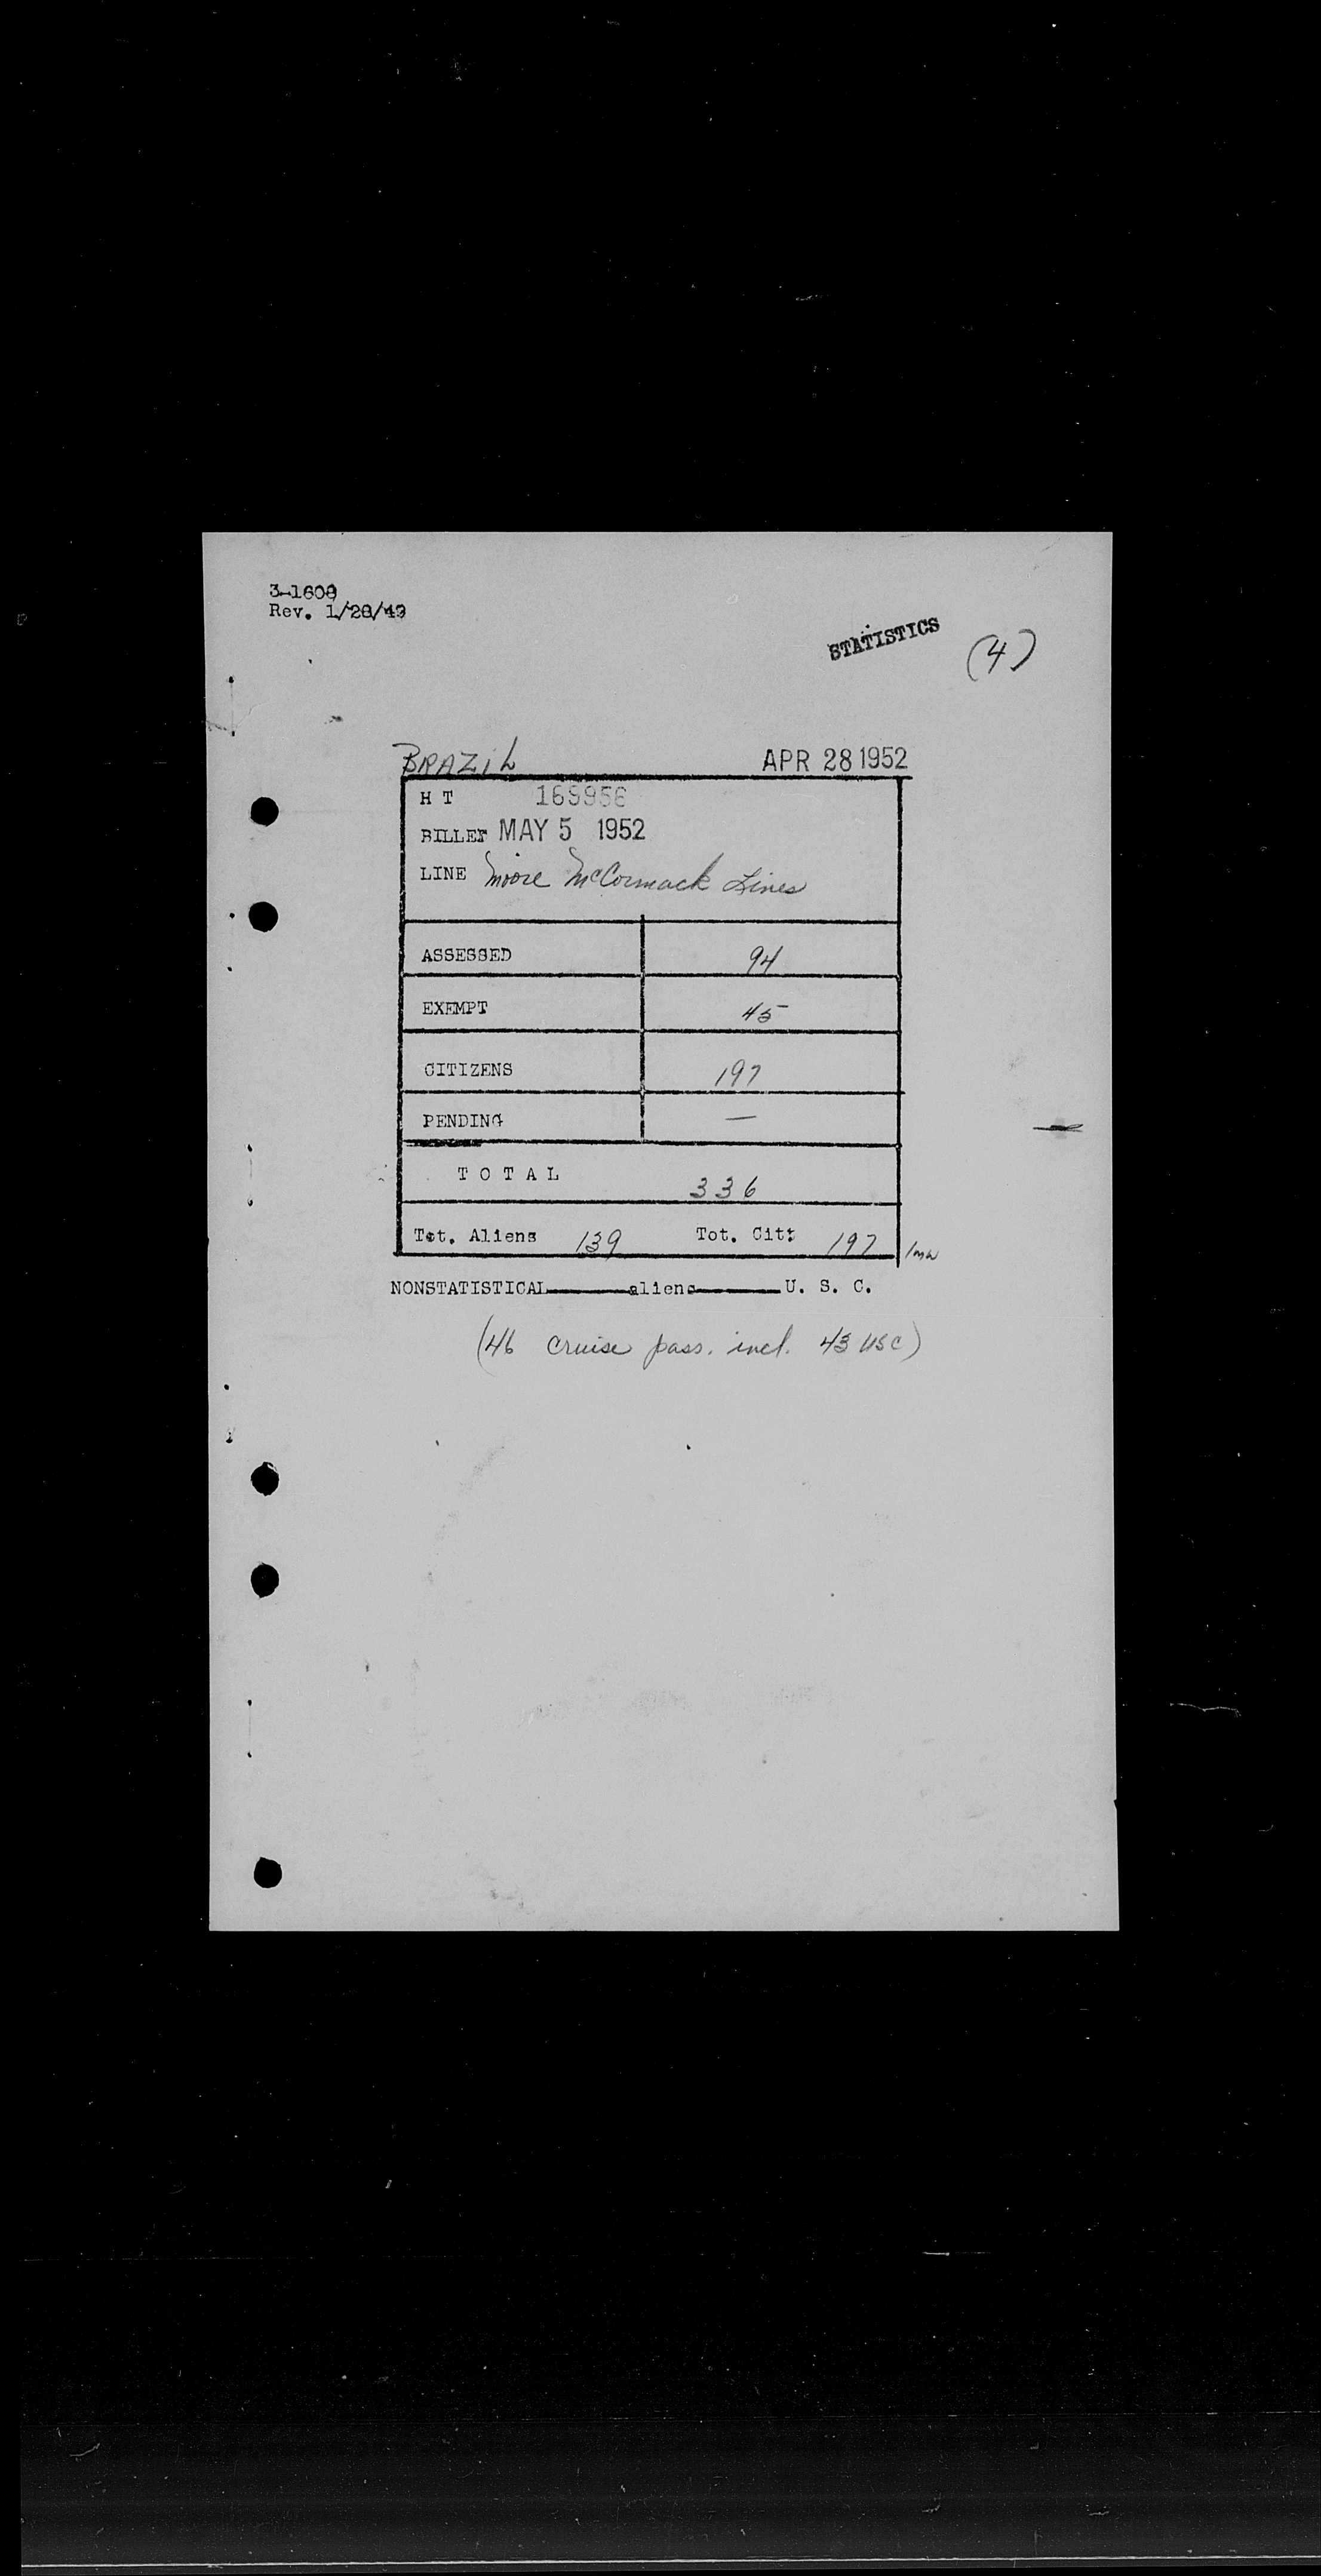 3-1609
Rev. 1/28/49
STATISTICS
(4)
BRAZIL APR 28 1952
H T 169956
BILLET MAY 5 1952
LINE Moore McCormack Lines
ASSESSED 94
EXEMPT 45
CITIZENS 197
PENDING —
T O T A L 336
Tot. Aliens 139 Tot. Cit: 197
NONSTATISTICAL aliens U. S. C.
(46 cruise pass. incl. 43 USC)